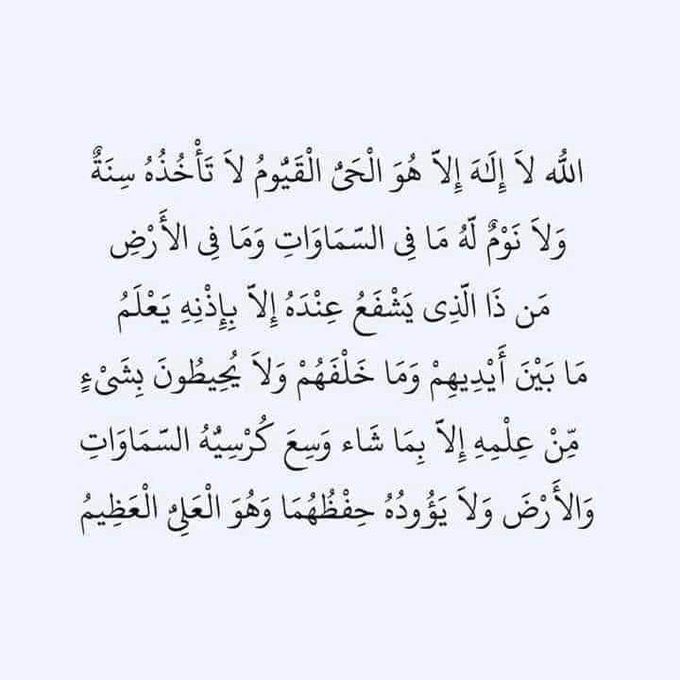 اللّٰه لاَ إِلَـٰهَ إِلاَّ هُوَ الْحَىُّ الْقَيُّومُ لاَ تَأْخُذُهُ سِنَةٌ
وَلاَ نَوْمٌ لَّهُ مَا فِى السَّمَاوَاتِ وَمَا فِى الأَرْضِ
مَن ذَا الَّذِى يَشْفَعُ عِنْدَهُ إِلاَّ بِإِذْنِهِ يَعْلَمُ
مَا بَيْنَ أَيْدِيهِمْ وَمَا خَلْفَهُمْ وَلاَ يُحِيطُونَ بِشَىْءٍ
مِّنْ عِلْمِهِ إِلاَّ بِمَا شَاء وَسِعَ كُرْسِيُّهُ السَّمَاوَاتِ
وَالأَرْضَ وَلاَ يَؤُودُهُ حِفْظُهُمَا وَهُوَ الْعَلِىُّ الْعَظِيمُ